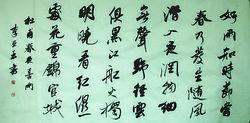 好雨知時節當
春乃發生随風
潜入夜潤物细
無聲野徑雲
俱黑江船火獨
明曉看紅濕
處花重錦官城
杜甫春夜喜雨